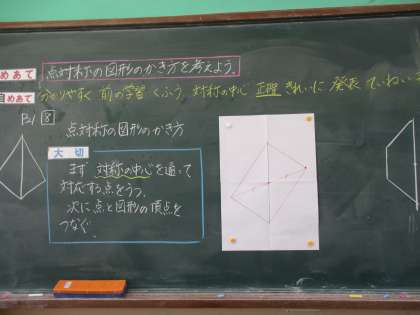 めあて 点対称の図形のかき方を考えよう。
自めあて わかりやすく 前の学習 くふう 対称の中心 正確 きれいに 発表 ていねい
P.1 8
点対称の図形のかき方
大切
まず 対称の中心を通って
対応する点をうつ。
次に点と図形の頂点を
つなぐ。